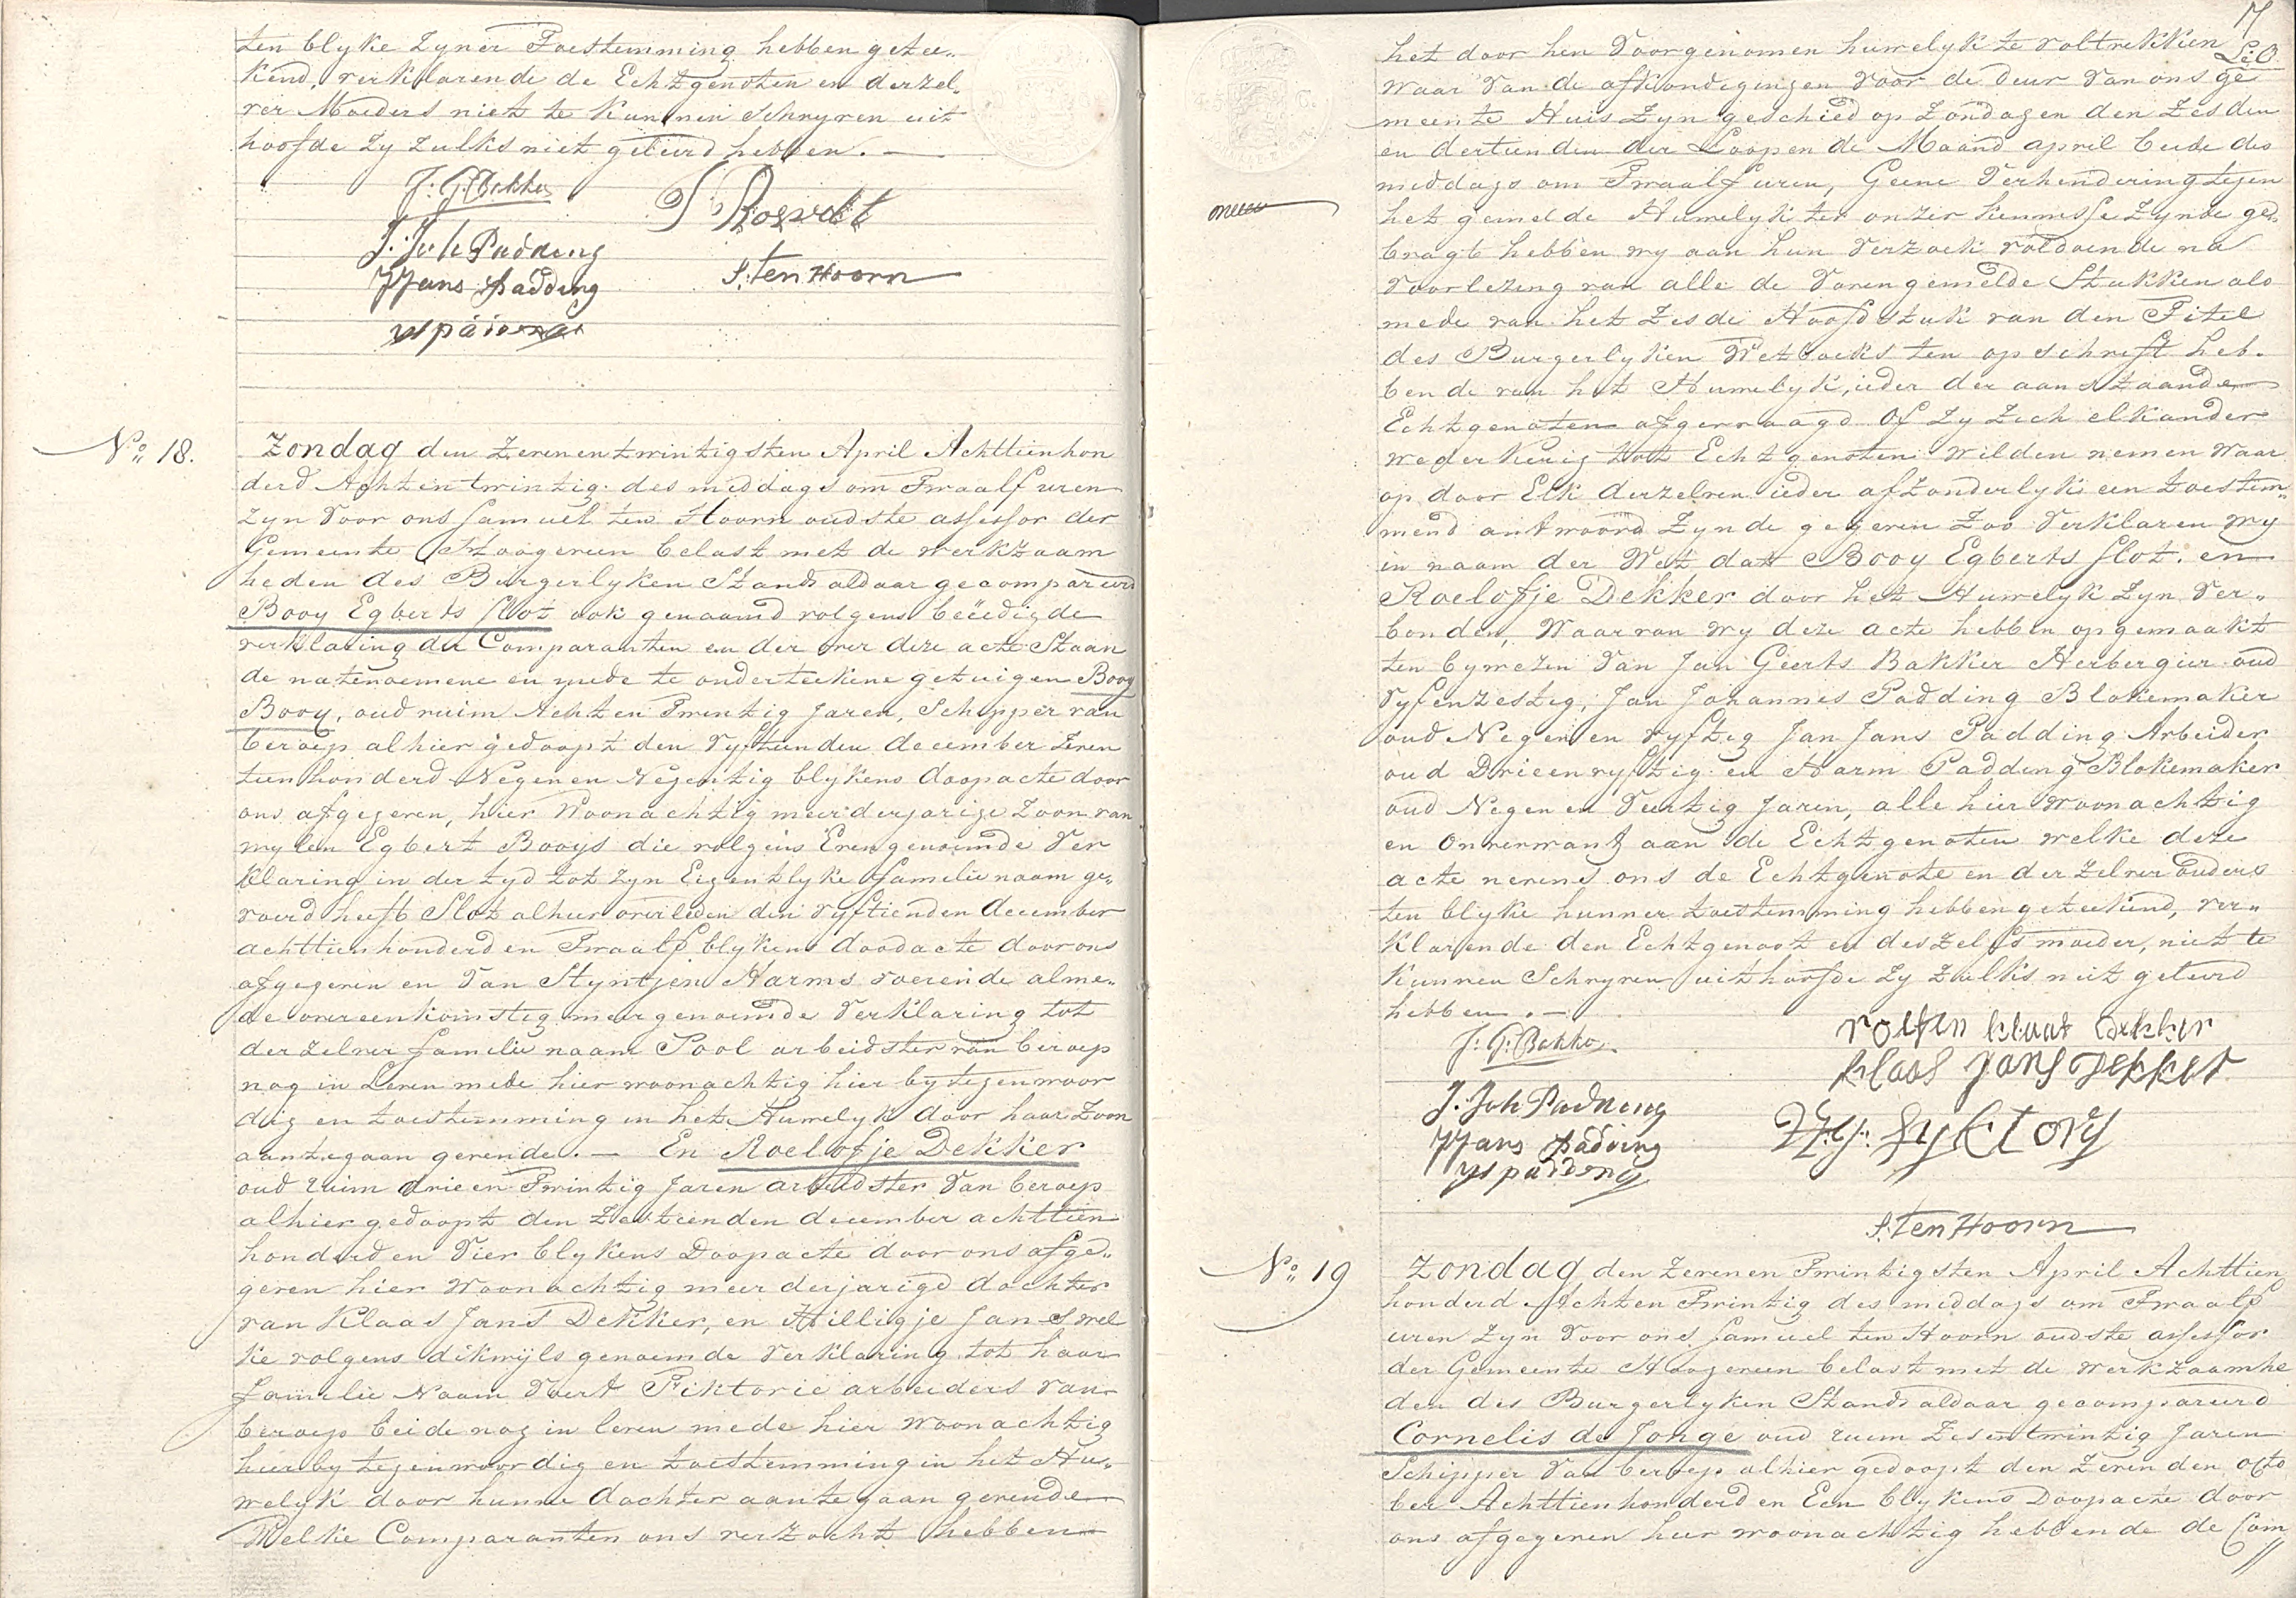 ten blyke zyner Toestemming hebben getee„
kend, verklarende de Echtgenoten en derzel„
ver Moeders niet te kunnen schryven uit
hoofde zy zulks niet geleerd hebben. —
J: G: Bakker
J. Joh Padding
JJans Padding
S. Ten Hoorn
No. 18.
Zondag den Zevenentwintigsten April Achttienhon
derd Achtentwintig des middags om Twaalf uren
zyn voor ons Samuel ten Hoorn oudste assessor der
Gemeente Hoogeveen belast met de werkzaam
heden des Burgerlyken Stands aldaar gecompareerd
Booy Egberts Slot ook genaamd volgens beëedigde
verklaring der Comparanten en der over deze acte staan
de natenoemene en mede te onderteekene getuigen Booy
Booy, oud ruim Acht en Twintig Jaren, Schipper van
beroep alhier gedoopt den Vyftienden december Zeven
tienhonderd Negen en Negentig blykens doopacte door
ons afgegeven, hier Woonachtig meerderjarige Zoon van
wylen Egbert Booys die volgens Evengenoemde Ver
klaring in der tyd tot zyn Eigentlyke familie naam ge„
voerd heeft Slot alhier overleden den vyftienden december
achttienhonderd en Twaalf blykens doodacte door ons
afgegeven en Van Styntjen Harms voerende alme„
de overeenkomstig meergenoemde Verklaring tot
derzelver familie naam Pool arbeidster van beroep
nog in Leven mede hier woonachtig hier by tegenwoor
dig en toestemming in het Huwelyk door haar Zoon
aantegaan gevende. — En Roelofje Dekker
oud ruim drie en Twintig Jaren arbeidster Van beroep
alhier gedoopt den Zestienden december achttien
honderd en Vier blykens Doopacte door ons afge„
geven hier woonachtig meerderjarige dochter
van Klaas Jans Dekker, en Hilligje Jans wel
ke volgens dikwyls genoemde Verklaring tot haar
familie Naam Voert Fiktorie arbeiders van
beroep beide nog in leven mede hier woonachtig
hierby tegenwoordig en toestemming in het Hu„
welyk door hunne dochter aantegaan gevende
Welke Comparanten ons verzocht hebben
17
het door hen Voorgenomen huwelyk te voltrekken
waar Van de afkondigingen Voor de deur Van ons ge
meente Huis Zyn geschied op Zondagen den Zesden
en dertienden der Loopende Maand april beide des
middags om Twaalf uren, Geene Verhindering tegen
het gemelde Huwelyk ter onzer kennisse Zynde ge„
bragt hebben wy aan hun Verzoek voldoende na
Voorlezing van alle de Vorengemelde Stukken als
mede van het Zesde Hoofdstuk van den Titel
des Burgerlyken Wetboeks ten opschrift heb„
bende van het Huwelyk, ieder der aanstaande
Echtgenoten afgevraagd Of zy zich elkander
wederkeerig tot Echtgenoten wilden nemen waar
op door Elk derzelven ieder afzonderlyk een toestem„
mend antwoord Zynde gegeven Zoo Verklaren wy
in naam der Wet dat Booy Egberts Slot. en
Roelofje Dekker door het Huwelyk Zyn Ver„
bonden, Waarvan wy deze acte hebben opgemaakt
ten bywezen Van Jan Geerts Bakker Herbergier oud
Vyfenzestig, Jan Johannes Padding Blokemaker
oud Negen en vyftig Jan Jans Padding Arbeider
oud Drieenvyftig en Harm Padding Blokemaker
oud Negen en Veertig Jaren, alle hier woonachtig
en Onverwant aan de Echtgenoten welke deze
acte nevens ons de Echtgenote en derzelver ouders
ten blyke hunner toestemming hebben geteekend, ver„
klarende den Echtgenoot en deszelfs moeder, niet te
kunnen Schryven uit hoofde zy zulks niet geleerd
hebben. —
J: G: Bakker
roelfien klaas dekker
klaas Jans dekker
J. Joh Padding
JJans Padding
HJ padding
S. Ten Hoorn
No. 19
Zondag den Zeven en Twintigsten April Achttien
honderd Acht en Twintig des middags om Twaalf
uren zyn Voor ons Samuel ten Hoorn oudste assessor
der Gemeente Hoogeveen belast met de werkzaamhe
den des Burgerlyken Stands aldaar gecompareerd
Cornelis de Jonge oud ruim Zesentwintig Jaren
Schipper Van beroep alhier gedoopt den Zevenden octo
ber Achttienhonderd en Een blykens Doopacte door
ons afgegeven hier woonachtig hebbende de Com